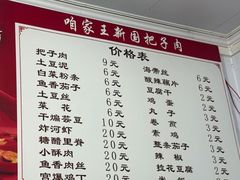 咱家王新国把子肉
价格表
把子肉 9元
土豆泥 6元
白菜粉条 6元
鱼香茄子 6元
土豆丝 6元
菜花 6元
干煸芸豆 10元
炸河虾 20元
糖醋里脊 20元
小酥肉 20元
鱼香肉丝 20元
宫爆鸡丁
海带丝 6元
酸辣藕片 6元
豆腐干 2元
鸡蛋 2元
丸子 2元
卷煎 2元
素鸡 2元
整条茄子
辣椒
拉花豆腐